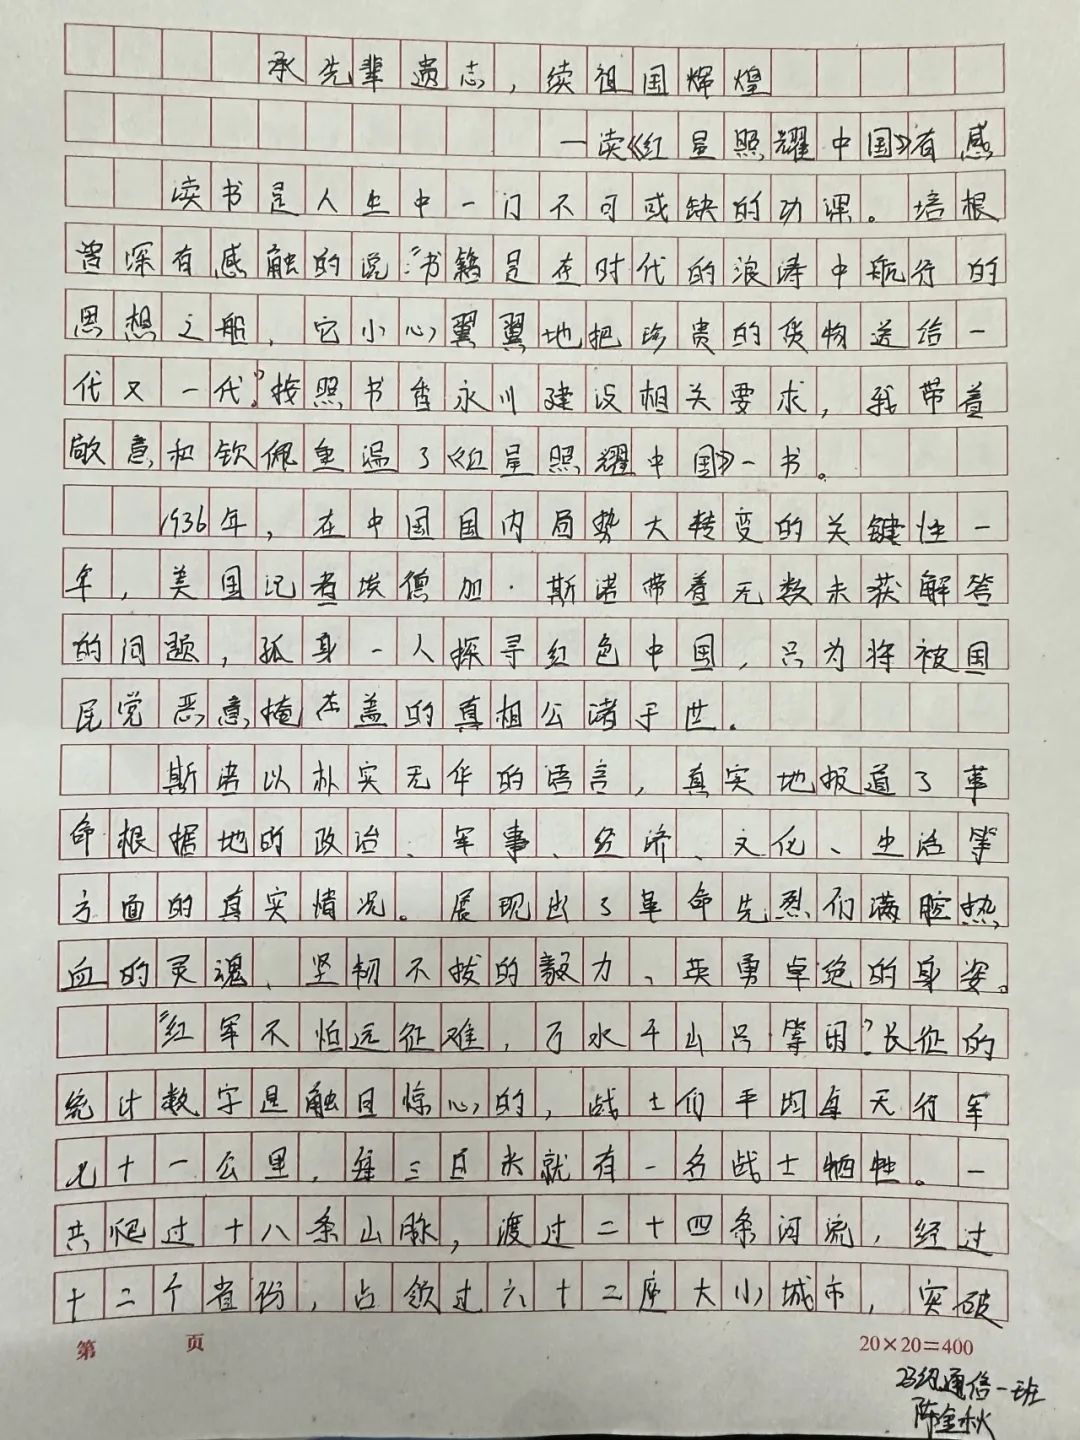 承先辈遗志，续祖国辉煌
—读《红星照耀中国》有感
读书是人生中一门不可或缺的功课。培根
曾深有感触的说：“书籍是在时代的浪涛中航行的
思想之船，它小心翼翼地把珍贵的货物送给一
代又一代”。按照书香永川建设相关要求，我带着
敬意和钦佩重温了《红星照耀中国》一书。
1936年，在中国国内局势大转变的关键性一
年，美国记者埃德加·斯诺带着无数未获解答
的问题，孤身一人探寻红色中国，只为将被国
民党恶意掩盖的真相公诸于世。
斯诺以朴实无华的语言，真实地报道了革
命根据地的政治、军事、经济、文化、生活等
方面的真实情况。展现出了革命先烈们满腔热
血的灵魂、坚韧不拔的毅力、英勇卓绝的身姿。
“红军不怕远征难，万水千山只等闲”长征的
统计数字是触目惊心的，战士们平均每天行军
七十一公里，每三百米就有一名战士牺牲。一
共爬过十八条山脉，渡过二十四条河流，经过
十二个省份，占领过六十二座大小城市，突破
第 页
20×20=400
23级通信一班
陈金秋